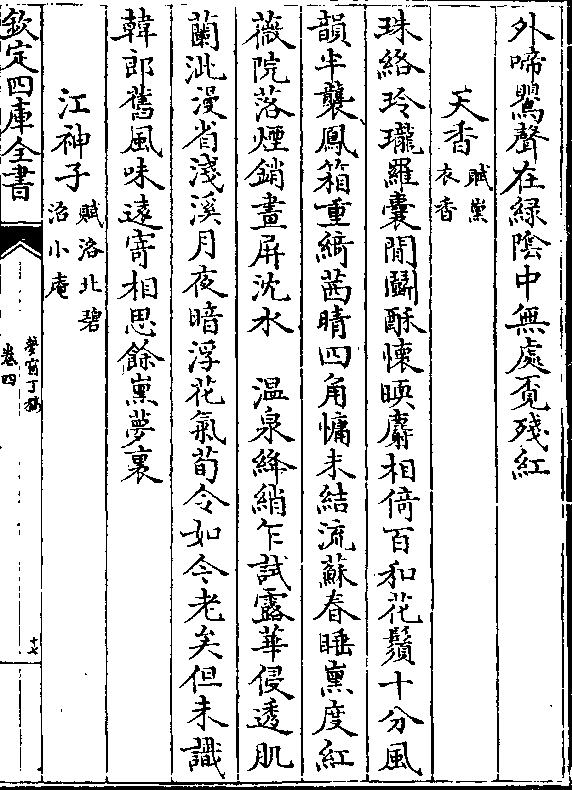 外啼鸎聲在緑陰中無處覔殘紅
天香賦熏衣香
珠絡玲瓏羅囊閒鬬酥懷暎麝相倚百和花鬚十分風
韻半襲鳳箱重綺茜晴四角慵未結流蘇春睡熏度紅
薇院落煙銷畫屏沈水　温泉絳綃乍試露華侵透肌
蘭泚漫省淺溪月夜暗浮花氣荀令如今老矣但未識
韓郎舊風味遠寄相思餘熏夢裏
江神子賦洛北碧沼小庵
欽定四庫全書
夢窗丁稿
卷四
十七